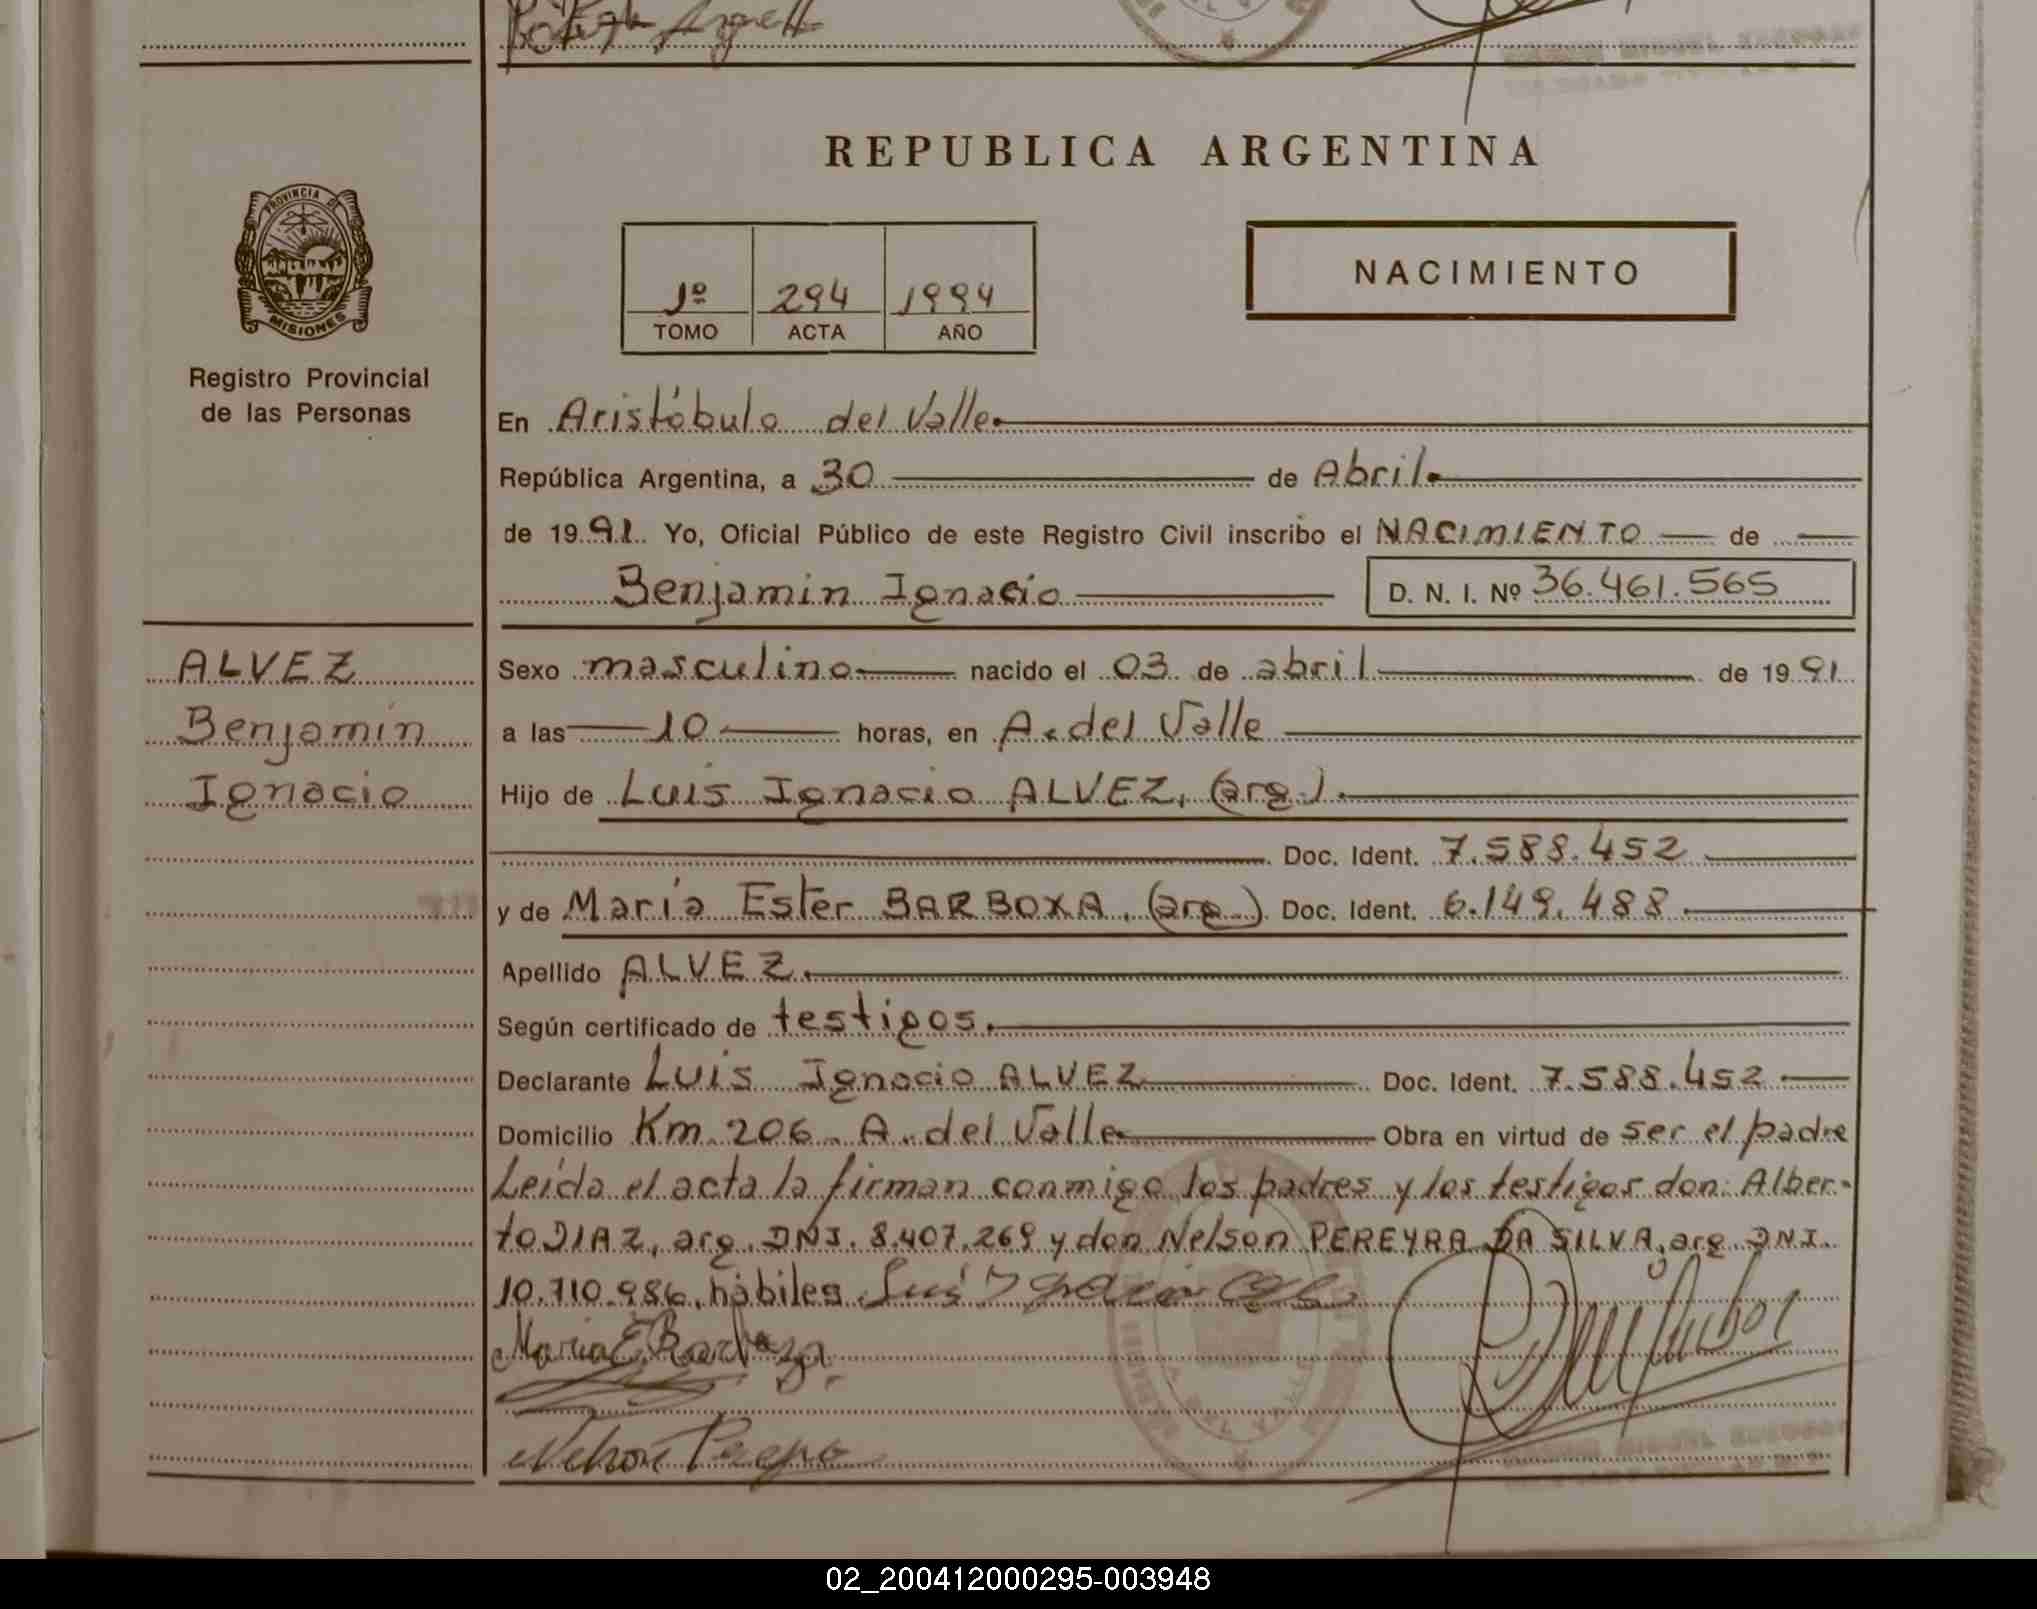 REPUBLICA ARGENTINA
PROVINCIA DE
MISIONES
Registro Provincial
de las Personas
1º 294 1994
TOMO ACTA AÑO
NACIMIENTO
En Aristóbulo del Valle
República Argentina, a 30 de Abril
de 1991. Yo, Oficial Público de este Registro Civil inscribo el NACIMIENTO de
Benjamin Ignacio D. N. I. Nº 36.461.565
ALVEZ
Benjamín
Ignacio
Sexo masculino nacido el 03 de abril de 1991
a las 10 horas, en A. del Valle
Hijo de Luis Ignacio ALVEZ, (arg.).
Doc. Ident. 7.588.452
y de María Ester BARBOXA, (arg.) Doc. Ident. 6.149.488
Apellido ALVEZ.
Según certificado de testigos.
Declarante Luis Ignacio ALVEZ Doc. Ident. 7.588.452
Domicilio Km. 206 A. del Valle Obra en virtud de ser el padre
Leída el acta la firman conmigo los padres y los testigos don: Alber-
to DIAZ, arg. DNI. 8.407.269 y don Nelson PEREYRA DA SILVA, arg. DNI.
10.710.986, hábiles
Maria E. Barboza
02_200412000295-003948